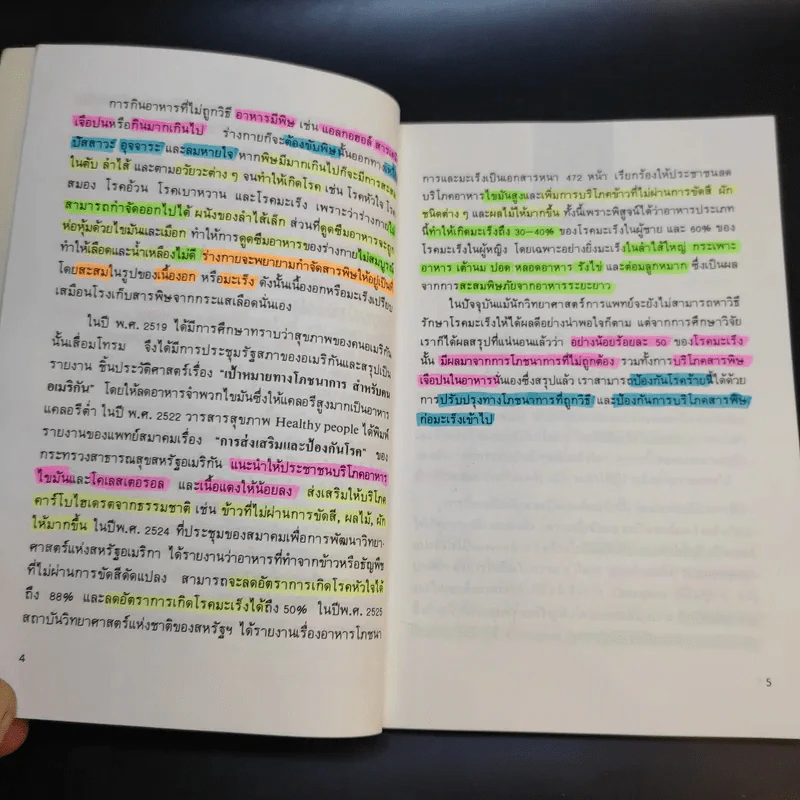 การกินอาหารที่ไม่ถูกวิธี อาหารมีพิษ เช่น แอลกอฮอล์
เจือปนหรือกินมากเกินไป ร่างกายก็จะต้องขับพิษนั้นออกทาง
ปัสสาวะ อุจจาระ และลมหายใจ หากพิษมีมากเกินไปก็จะมีการสะสม
ในตับ ลำไส้ และตามอวัยวะต่าง ๆ จนทำให้เกิดโรค เช่น โรคหัวใจ
สมอง โรคอ้วน โรคเบาหวาน และโรคมะเร็ง เพราะว่าร่างกาย
สามารถกำจัดออกไปได้ ผนังของลำไส้เล็ก ส่วนที่ดูดซึมอาหารจะถูก
ห่อหุ้มด้วยไขมันและเมือก ทำให้การดูดซึมอาหารของร่างกายไม่สมบูรณ์
ทำให้เลือดและน้ำเหลืองไม่ดี ร่างกายจะพยายามกำจัดสารพิษให้อยู่เป็นที่
โดยสะสมในรูปของเนื้องอก หรือมะเร็ง ดังนั้นเนื้องอกหรือมะเร็งเปรียบ
เสมือนโรงเก็บสารพิษจากกระแสเลือดนั่นเอง
ในปี พ.ศ. 2519 ได้มีการศึกษาทราบว่าสุขภาพของคนอเมริกัน
นั้นเสื่อมโทรม จึงได้มีการประชุมรัฐสภาของอเมริกันและสรุปเป็น
รายงาน ชิ้นประวัติศาสตร์เรื่อง "เป้าหมายทางโภชนาการ สำหรับคน
อเมริกัน" โดยให้ลดอาหารจำพวกไขมันซึ่งให้แคลอรีสูงมากเป็นอาหาร
แคลอรีต่ำ ในปี พ.ศ. 2522 วารสารสุขภาพ Healthy people ได้พิมพ์
รายงานของแพทย์สมาคมเรื่อง "การส่งเสริมและป้องกันโรค" ของ
กระทรวงสาธารณสุขสหรัฐอเมริกัน แนะนำให้ประชาชนบริโภคอาหาร
ไขมันและโคเลสเตอรอล และเนื้อแดงให้น้อยลง ส่งเสริมให้บริโภค
คาร์โบไฮเดรตจากธรรมชาติ เช่น ข้าวที่ไม่ผ่านการขัดสี, ผลไม้, ผัก
ให้มากขึ้น ในปีพ.ศ. 2524 ที่ประชุมของสมาคมเพื่อการพัฒนาวิทยา-
ศาสตร์แห่งสหรัฐอเมริกา ได้รายงานว่าอาหารที่ทำจากข้าวหรือธัญพืช
ที่ไม่ผ่านการขัดสีดัดแปลง สามารถจะลดอัตราการเกิดโรคหัวใจได้
ถึง 88% และลดอัตราการเกิดโรคมะเร็งได้ถึง 50% ในปีพ.ศ. 2525
สถาบันวิทยาศาสตร์แห่งชาติของสหรัฐฯ ได้รายงานเรื่องอาหารโภชนา
4
การและมะเร็งเป็นเอกสารหนา 472 หน้า เรียกร้องให้ประชาชนลด
บริโภคอาหารไขมันสูงและเพิ่มการบริโภคข้าวที่ไม่ผ่านการขัดสี ผัก
ชนิดต่าง ๆ และผลไม้ให้มากขึ้น ทั้งนี้เพราะพิสูจน์ได้ว่าอาหารประเภท
นี้ทำให้เกิดมะเร็งถึง 30-40% ของโรคมะเร็งในผู้ชาย และ 60% ของ
โรคมะเร็งในผู้หญิง โดยเฉพาะอย่างยิ่งมะเร็งในลำไส้ใหญ่ กระเพาะ
อาหาร เต้านม ปอด หลอดอาหาร รังไข่ และต่อมลูกหมาก ซึ่งเป็นผล
จากการสะสมพิษภัยจากอาหารระยะยาว
ในปัจจุบันแม้นักวิทยาศาสตร์การแพทย์จะยังไม่สามารถหาวิธี
รักษาโรคมะเร็งให้ได้ผลดีอย่างน่าพอใจก็ตาม แต่จากการศึกษาวิจัย
เราก็ได้ผลสรุปที่แน่นอนแล้วว่า อย่างน้อยร้อยละ 50 ของโรคมะเร็ง
นั้น มีผลมาจากการโภชนาการที่ไม่ถูกต้อง รวมทั้งการบริโภคสารพิษ
เจือปนในอาหารนั่นเองซึ่งสรุปแล้ว เราสามารถป้องกันโรคร้ายนี้ได้ด้วย
การปรับปรุงทางโภชนาการที่ถูกวิธี และป้องกันการบริโภคสารพิษ
ก่อมะเร็งเข้าไป
5